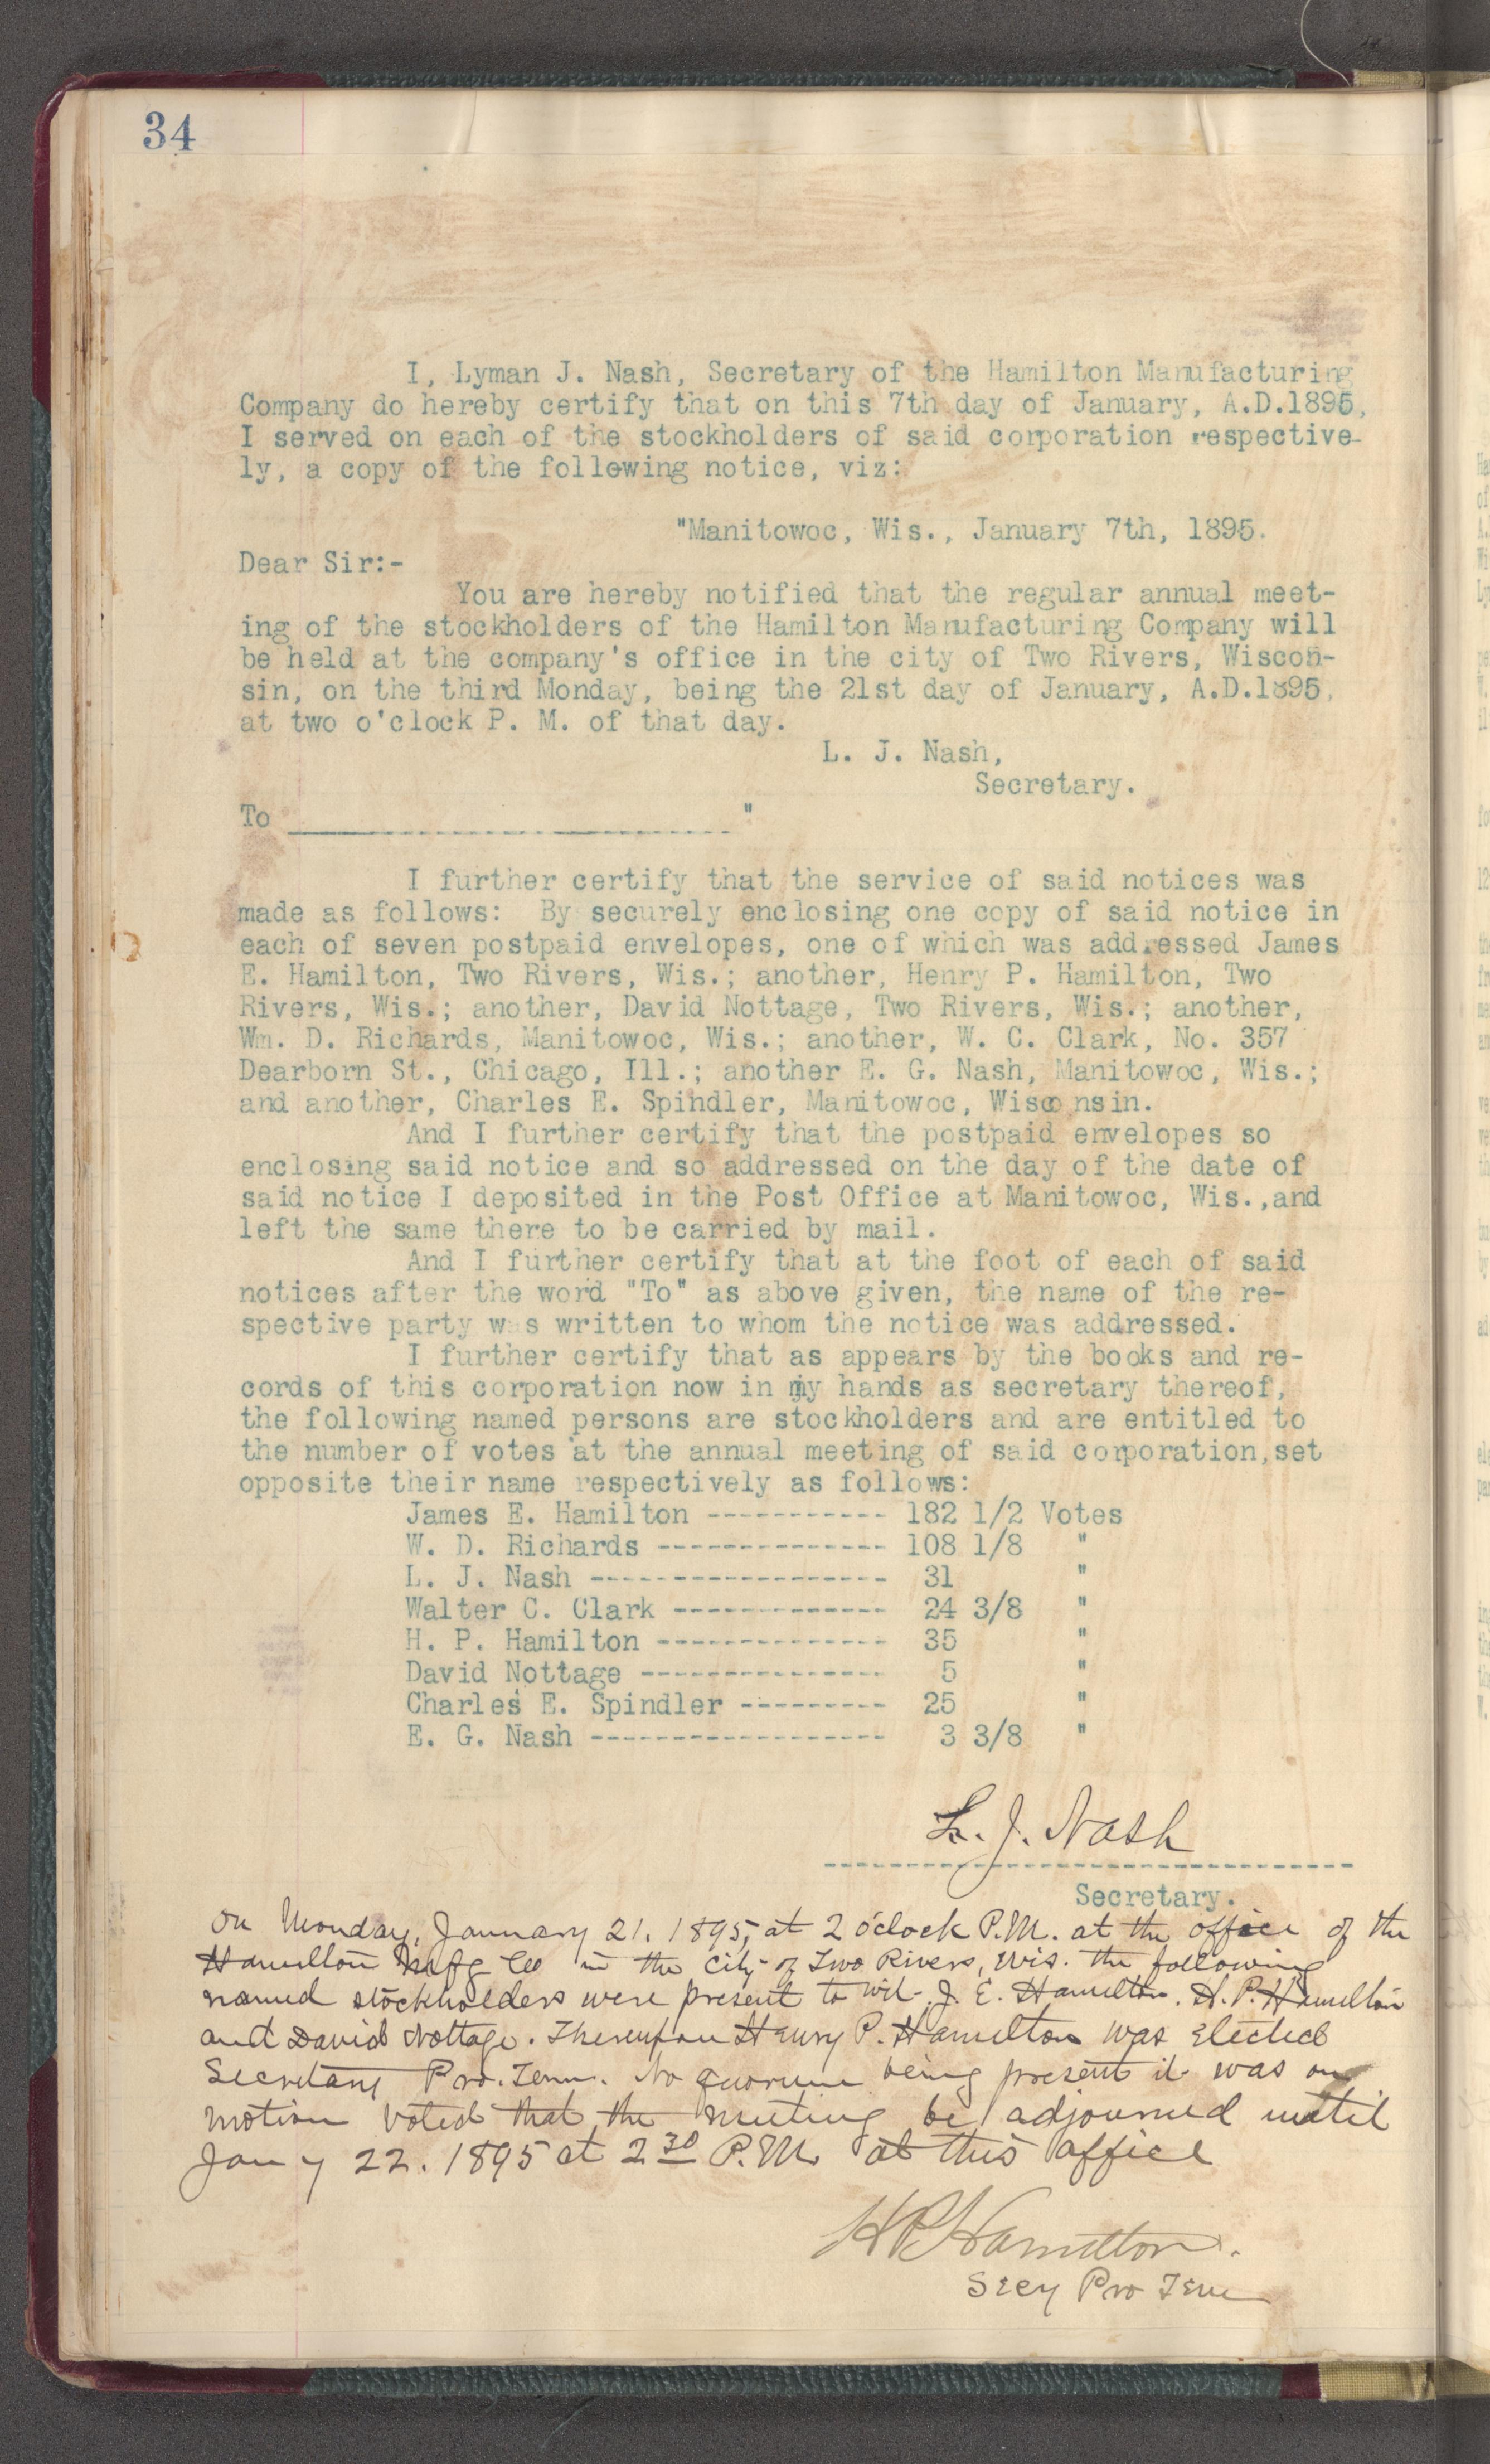 34
I, Lyman J. Nash, Secretary of the Hamilton Manufacturing
Company do hereby certify that on this 7th day of January, A.D.1895,
I served on each of the stockholders of said corporation respective-
ly, a copy of the following notice, viz:
"Manitowoc, Wis., January 7th, 1895.
Dear Sir:-
You are hereby notified that the regular annual meet-
ing of the stockholders of the Hamilton Manufacturing Company will
be held at the company's office in the city of Two Rivers, Wiscon-
sin, on the third Monday, being the 21st day of January, A.D.1895,
at two o'clock P. M. of that day.
L. J. Nash,
Secretary.
To ___________________________"
I further certify that the service of said notices was
made as follows: By securely enclosing one copy of said notice in
each of seven postpaid envelopes, one of which was addressed James
E. Hamilton, Two Rivers, Wis.; another, Henry P. Hamilton, Two
Rivers, Wis.; another, David Nottage, Two Rivers, Wis.; another,
Wm. D. Richards, Manitowoc, Wis.; another, W. C. Clark, No. 357
Dearborn St., Chicago, Ill.; another E. G. Nash, Manitowoc, Wis.;
and another, Charles E. Spindler, Manitowoc, Wisconsin.
And I further certify that the postpaid envelopes so
enclosing said notice and so addressed on the day of the date of
said notice I deposited in the Post Office at Manitowoc, Wis.,and
left the same there to be carried by mail.
And I further certify that at the foot of each of said
notices after the word "To" as above given, the name of the re-
spective party was written to whom the notice was addressed.
I further certify that as appears by the books and re-
cords of this corporation now in my hands as secretary thereof,
the following named persons are stockholders and are entitled to
the number of votes at the annual meeting of said corporation,set
opposite their name respectively as follows:
James E. Hamilton ----------- 182 1/2 Votes
W. D. Richards -------------- 108 1/8 "
L. J. Nash ------------------ 31 "
Walter C. Clark ------------- 24 3/8 "
H. P. Hamilton -------------- 35 "
David Nottage --------------- 5 "
Charles E. Spindler --------- 25 "
E. G. Nash ------------------ 3 3/8 "
L. J. Nash
Secretary.
On Monday, January 21. 1895, at 2 o'clock P.M. at the office of the
Hamilton Mnfg Co in the City of Two Rivers, Wis. the following
named stockholders were present to wit. J. E. Hamilton. H. P. Hamilton
and David Nottage. Thereupon Henry P. Hamilton was elected
Secretary Pro. Tem. No quorum being present it was on
motion voted that the meeting be adjourned until
Jany 22. 1895 at 2 30 P.M. at this office
H P Hamilton.
Secy Pro Tem